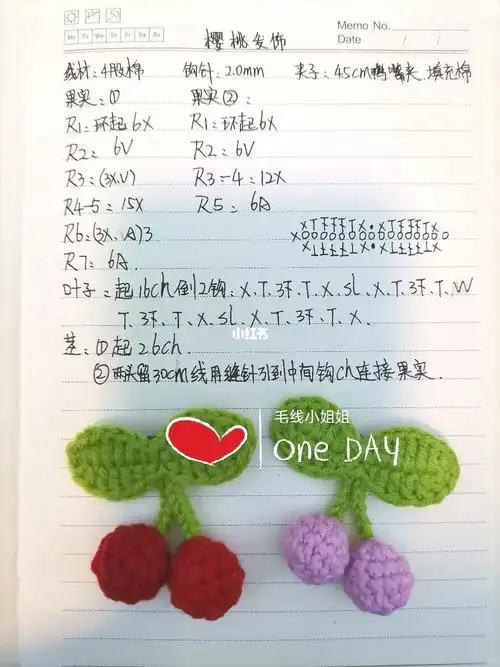 Memo No.
Mo Tu We Th Fr Sa Su
Date / /
樱桃发饰
线材：4股棉 钩针：2.0mm 夹子：4.5cm鸭嘴夹.填充棉
果实：① 果实②：
R1：环起6X R1：环起6X
R2：6V R2：6V
R3：(3X.V) R3-4：12X
R4-5：15X R5：6A
R6：(3X、A)3
R7：6A.
叶子：起16ch 倒2钩：X.T.3环.T.X.SL.X.T.3环.T.W
T.3环.T.X.SL.X.T.3环.T.X.
小红书
茎：①起26ch.
②两头留30cm线用缝针引到中间钩ch连接果实.
毛线小姐姐
one DAY